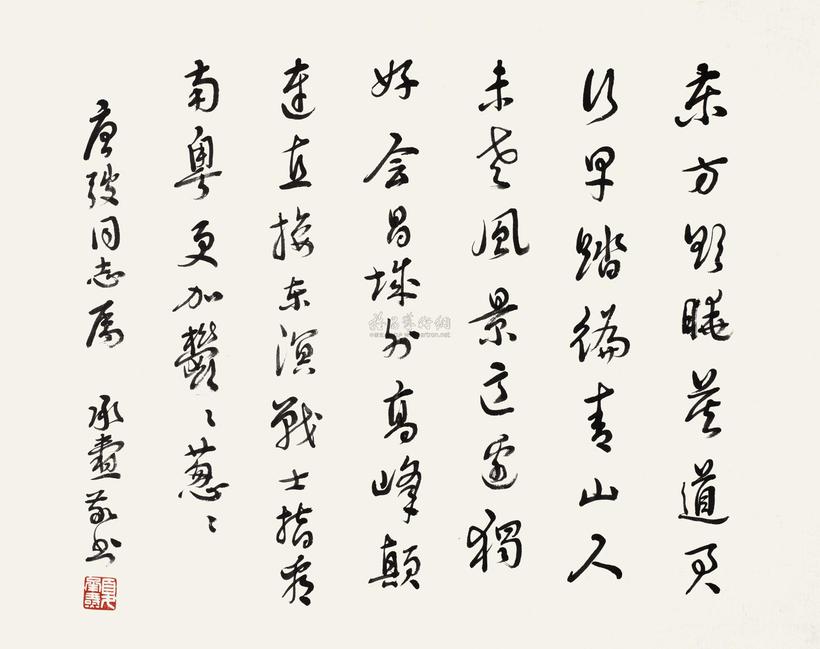 东方欲晓莫道君
行早踏徧青山人
未老風景这边獨
好会昌城外高峰顛
连直接东溟战士指看
南粤更加鬱〻葱〻
唐弢同志属 承燾敬书